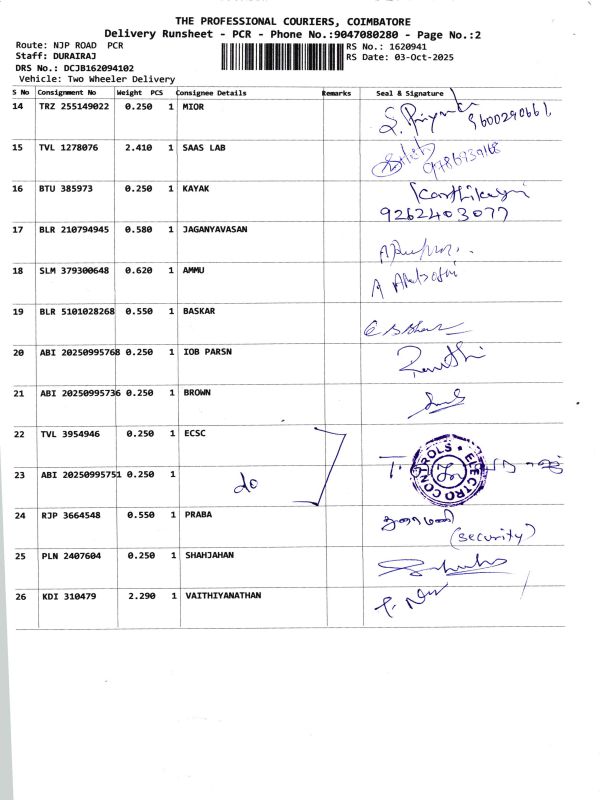 THE PROFESSIONAL COURIERS, COIMBATORE
Delivery Runsheet - PCR - Phone No.:9047080280 - Page No.:2
Route: NJP ROAD PCR
Staff: DURAIRAJ
DRS No.: DCJB162094102
Vehicle: Two Wheeler Delivery
RS No.: 1620941
RS Date: 03-Oct-2025
S No Consignment No Weight PCS Consignee Details Remarks Seal & Signature
14 TRZ 255149022 0.250 1 MIOR S. Priyanka 9600290661
15 TVL 1278076 2.410 1 SAAS LAB
16 BTU 385973 0.250 1 KAYAK Karthikeyan
9262403077
17 BLR 210794945 0.580 1 JAGANYAVASAN
18 SLM 379300648 0.620 1 AMMU
19 BLR 5101028268 0.550 1 BASKAR
20 ABI 20250995768 0.250 1 IOB PARSN
21 ABI 20250995736 0.250 1 BROWN
22 TVL 3954946 0.250 1 ECSC
23 ABI 20250995751 0.250 1 do ELECTRO CONTROLS
24 RJP 3664548 0.550 1 PRABA
(security)
25 PLN 2407604 0.250 1 SHAHJAHAN
26 KDI 310479 2.290 1 VAITHIYANATHAN